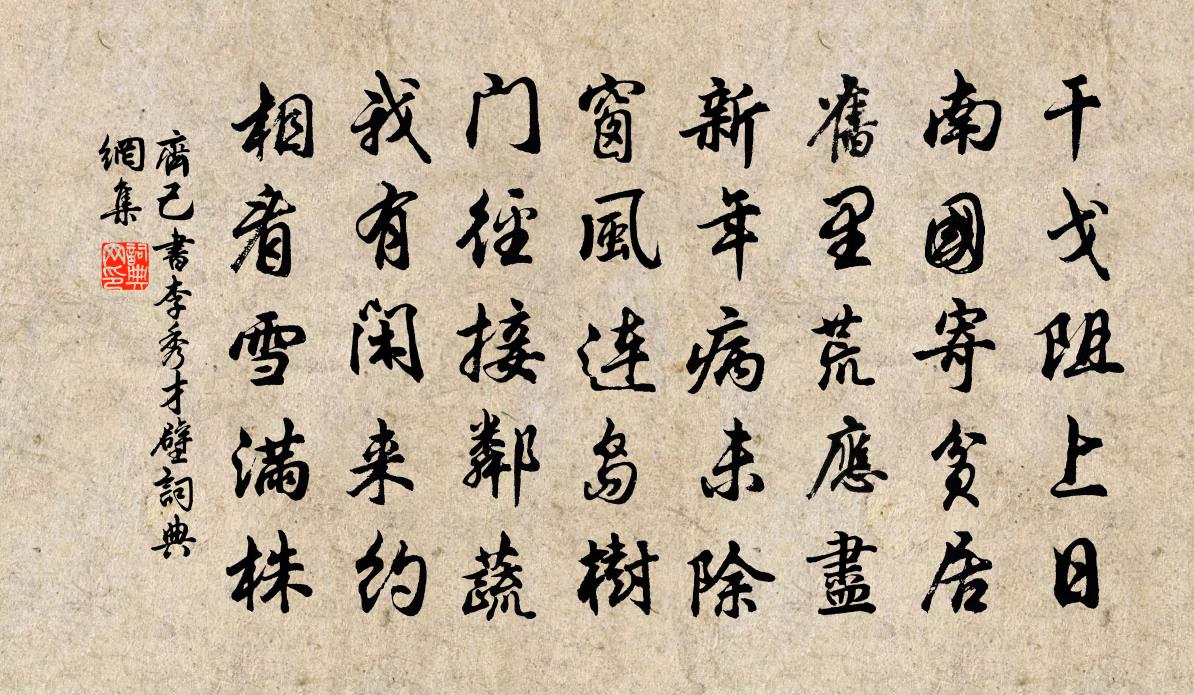 干戈阻上日
南國寄貧居
舊里荒應盡
新年病未除
窗風連島樹
门徑接鄰蔬
我有闲来約
相看雪满株
齊己書李秀才壁詞典
網集
詞典
网印